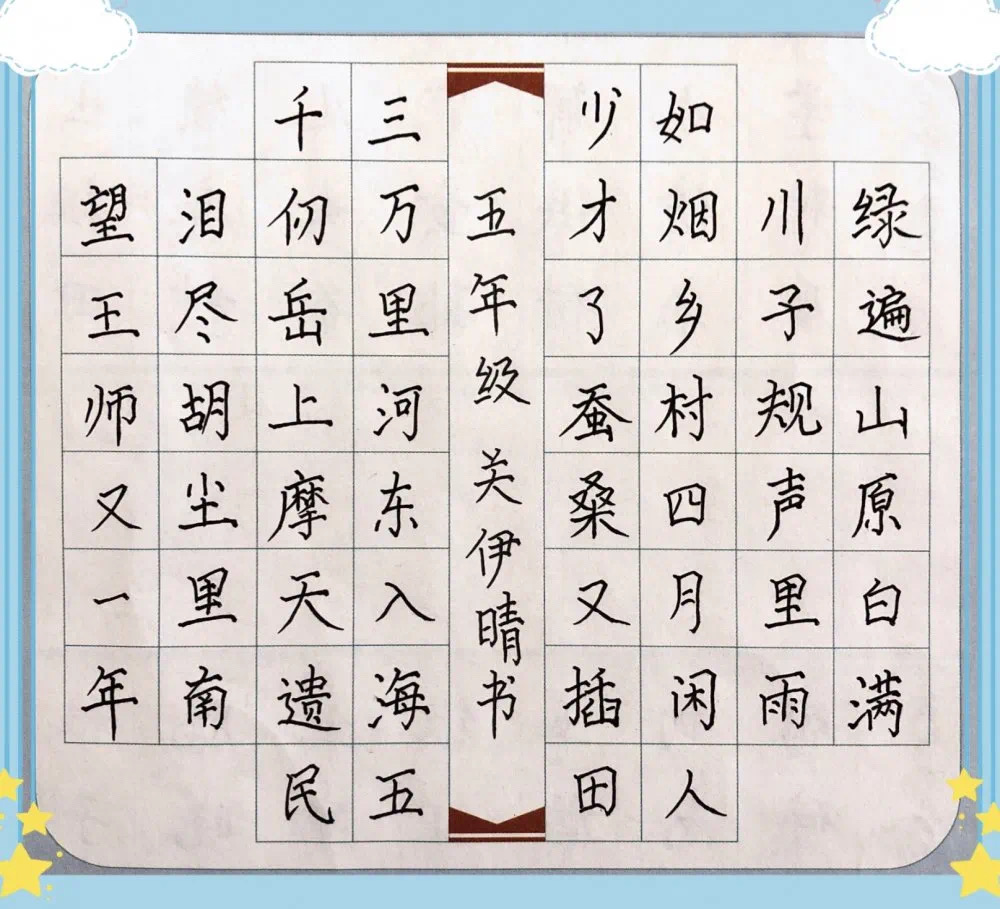 绿遍山原白满
川子规声里雨
如烟乡村四月闲人
少才了蚕桑又插田
五年级 关伊晴书
三万里河东入海五
千仞岳上摩天遗民
泪尽胡尘里南
望王师又一年